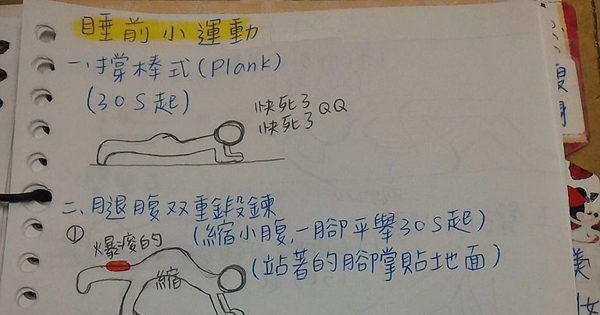 睡前小運動
一、撐棒式(Plank)
(30S起)
快死了
快死了QQ
二、腿腹双重鍛鍊
① 爆痠的
(縮小腹,一腳平舉30S起)
(站著的腳掌貼地面)
縮